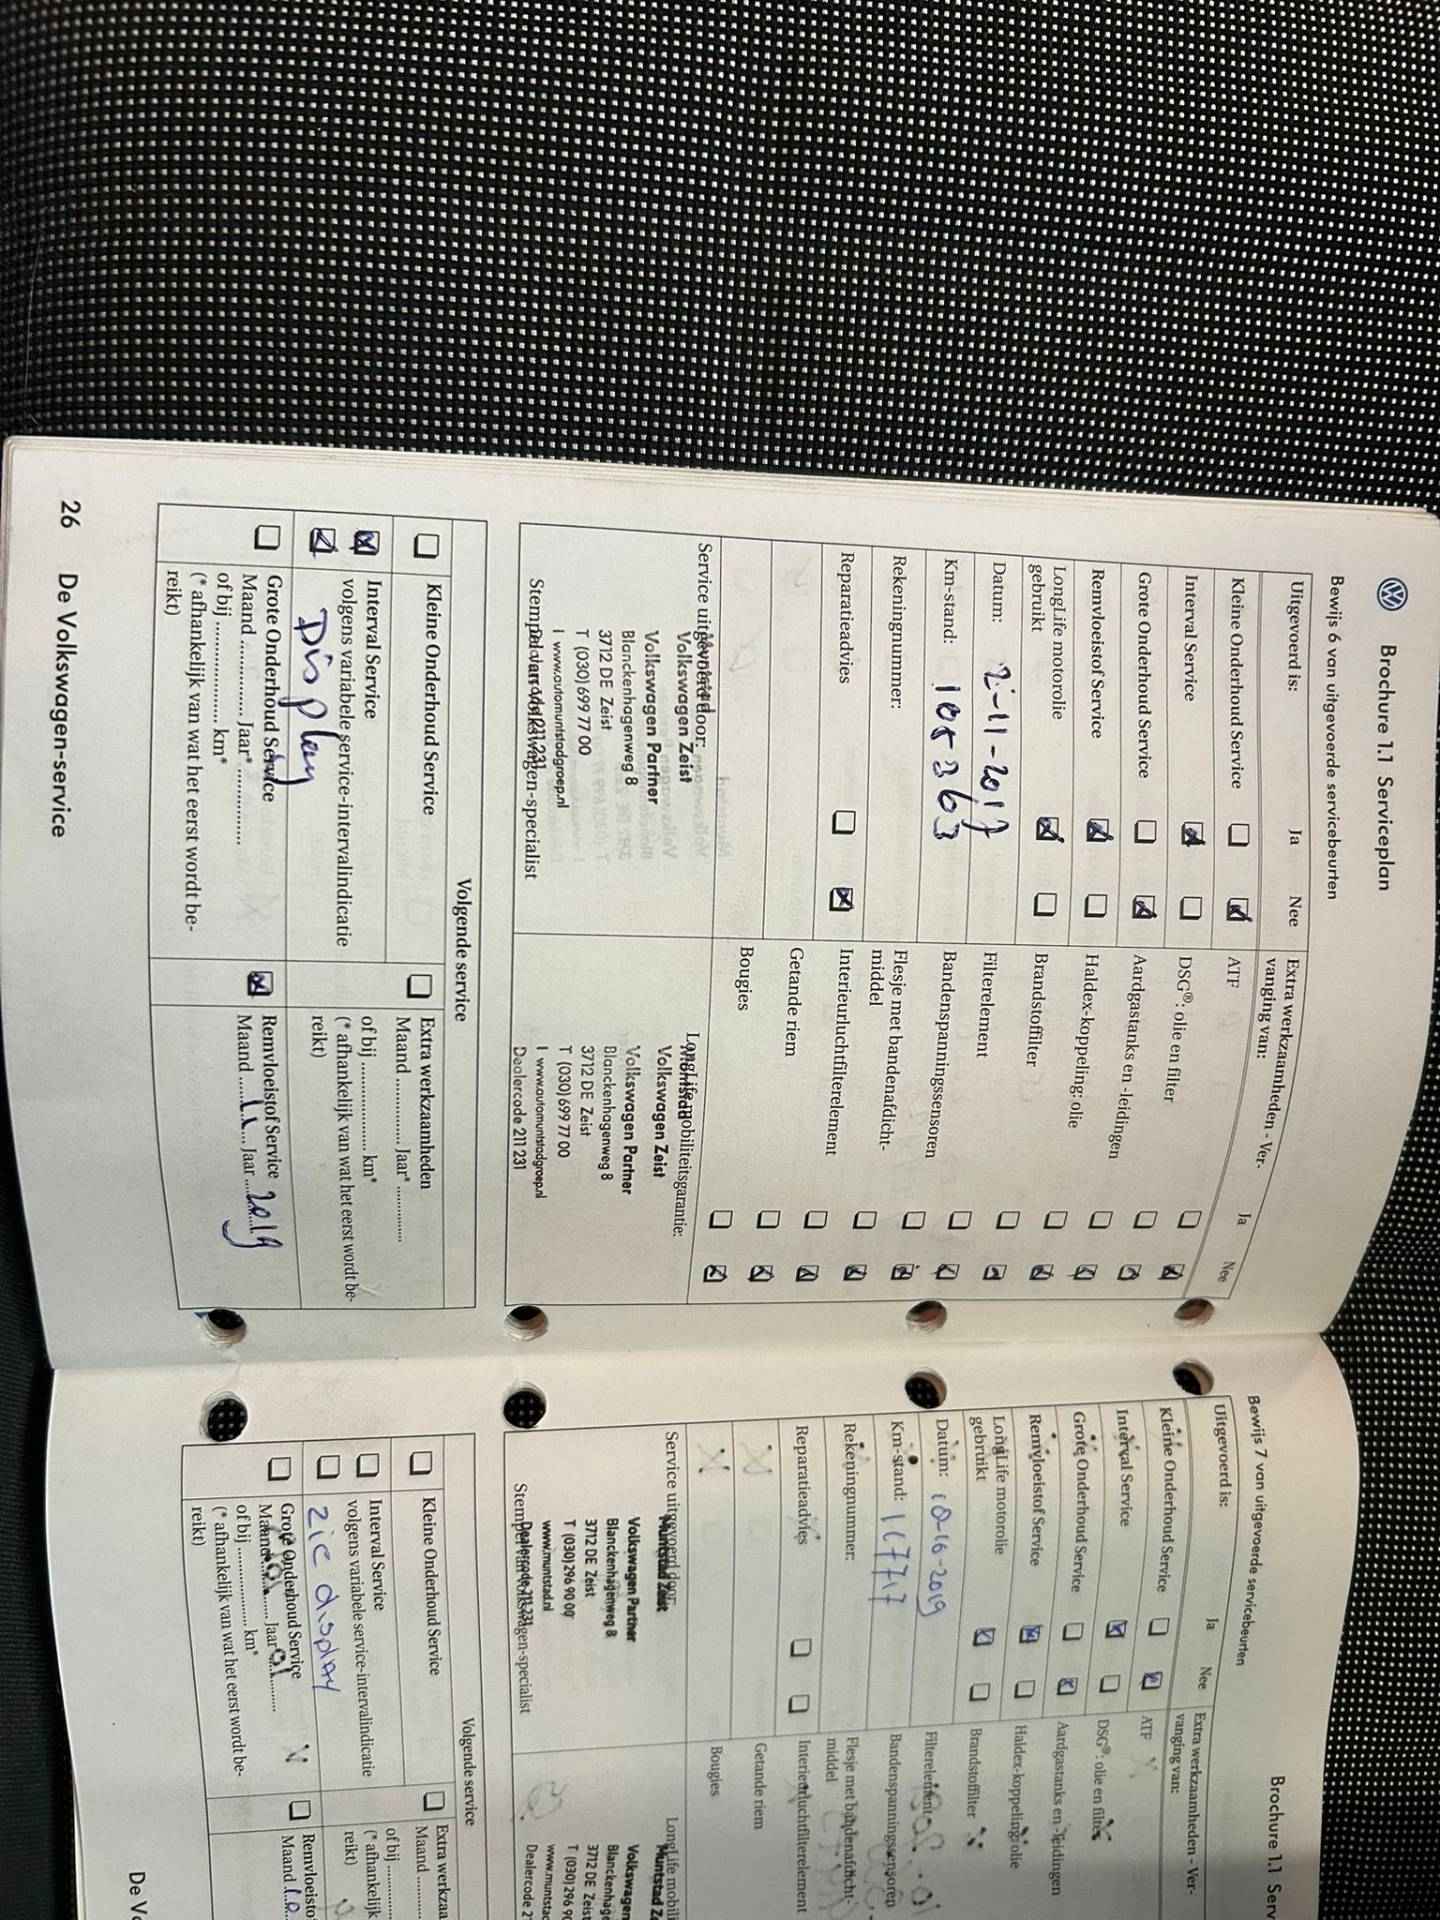 Brochure 1.1 Serviceplan
Bewijs 6 van uitgevoerde servicebeurten
Uitgevoerd is: Ja Nee
Kleine Onderhoud Service
Interval Service
Grote Onderhoud Service
Remvloeistof Service
LongLife motorolie
gebruikt
Datum: 2-11-2017
Km-stand: 108363
Rekeningnummer:
Reparatieadvies
Extra werkzaamheden - Ver-
vanging van: Ja Nee
ATF
DSG®: olie en filter
Aardgastanks en -leidingen
Haldex-koppeling: olie
Brandstoffilter
Filterelement
Bandenspanningssensoren
Flesje met bandenafdicht-
middel
Interieurluchtfilterelement
Getande riem
Bougies
Service uitgevoerd door:
Volkswagen Zeist
Volkswagen Partner
Blanckenhagenweg 8
3712 DE Zeist
T (030) 699 77 00
I www.automuntstadgroep.nl
Dealercode 211 231
Stempel van Volkswagen-specialist
LongLife mobiliteitsgarantie:
Muntstad
Volkswagen Zeist
Volkswagen Partner
Blanckenhagenweg 8
3712 DE Zeist
T (030) 699 77 00
I www.automuntstadgroep.nl
Dealercode 211 231
Volgende service
Kleine Onderhoud Service
Interval Service
volgens variabele service-intervalindicatie
Display
Grote Onderhoud Service
Maand .............. Jaar* ..............
of bij .................... km*
(* afhankelijk van wat het eerst wordt be-
reikt)
Extra werkzaamheden
Maand .............. Jaar* ..............
of bij .................... km*
(* afhankelijk van wat het eerst wordt be-
reikt)
Remvloeistof Service
Maand 11 Jaar 2019
26 De Volkswagen-service
Brochure 1.1 Serv
Bewijs 7 van uitgevoerde servicebeurten
Uitgevoerd is: Ja Nee
Kleine Onderhoud Service
Interval Service
Grote Onderhoud Service
Remvloeistof Service
LongLife motorolie
gebruikt
Datum: 10-10-2019
Km-stand: 167717
Rekeningnummer:
Reparatieadvies
Extra werkzaamheden - Ver-
vanging van:
ATF
DSG®: olie en filter
Aardgastanks en -leidingen
Haldex-koppeling: olie
Brandstoffilter
Filterelement
Bandenspanningssensoren
Flesje met bandenafdicht-
middel
Interieurluchtfilterelement
Getande riem
Bougies
Service uitgevoerd door:
Muntstad Zeist
Volkswagen Partner
Blanckenhagenweg 8
3712 DE Zeist
T (030) 296 90 00
www.muntstad.nl
Dealercode 211 231
Stempel van Volkswagen-specialist
LongLife mobili
Muntstad Ze
Volkswagen
Blanckenhage
3712 DE Zeist
T (030) 296 90
www.muntstad
Dealercode 2
Volgende service
Kleine Onderhoud Service
Interval Service
volgens variabele service-intervalindicatie
zie display
Grote Onderhoud Service
Maand .............. Jaar* ..............
of bij .................... km*
(* afhankelijk van wat het eerst wordt be-
reikt)
Extra werkzaa
Maand ..............
of bij ..............
(* afhankelijk
reikt)
Remvloeisto
Maand 10
De Vo